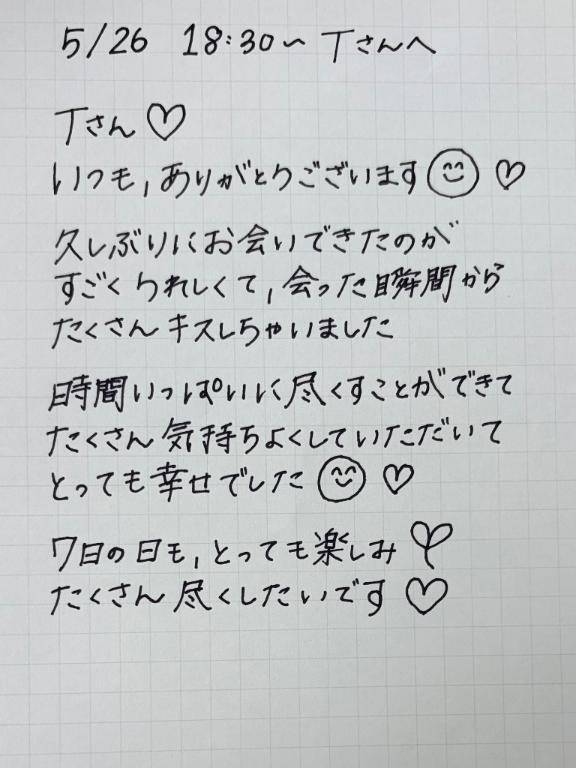 5/26 18:30〜 Tさんへ
Tさん♡
いつも,ありがとうございます😊♡
久しぶりにお会いできたのが
すごくうれしくて,会った瞬間から
たくさんキスしちゃいました
時間いっぱいに尽くすことができて
たくさん気持ちよくしていただいて
とっても幸せでした😊♡
7日の日も,とっても楽しみ
たくさん尽くしたいです♡